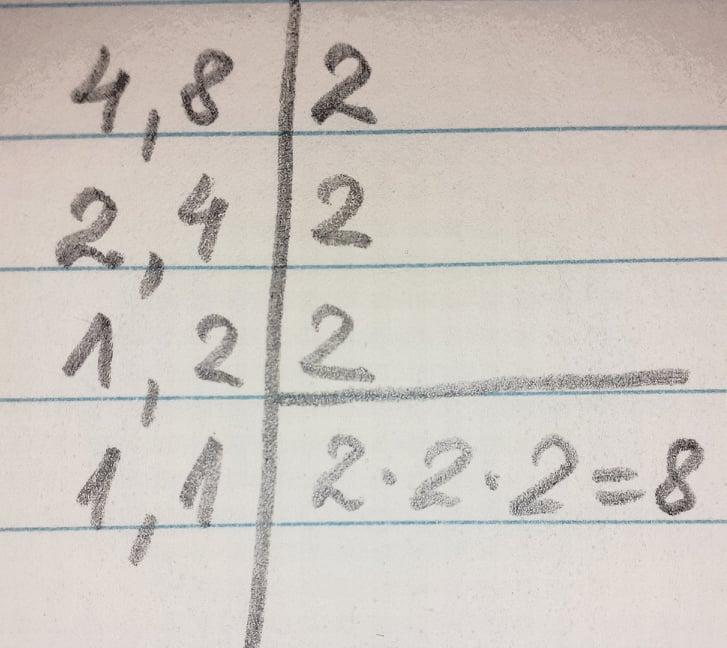 4,8 | 2
2,4 | 2
1,2 | 2
1,1 | 2·2·2=8